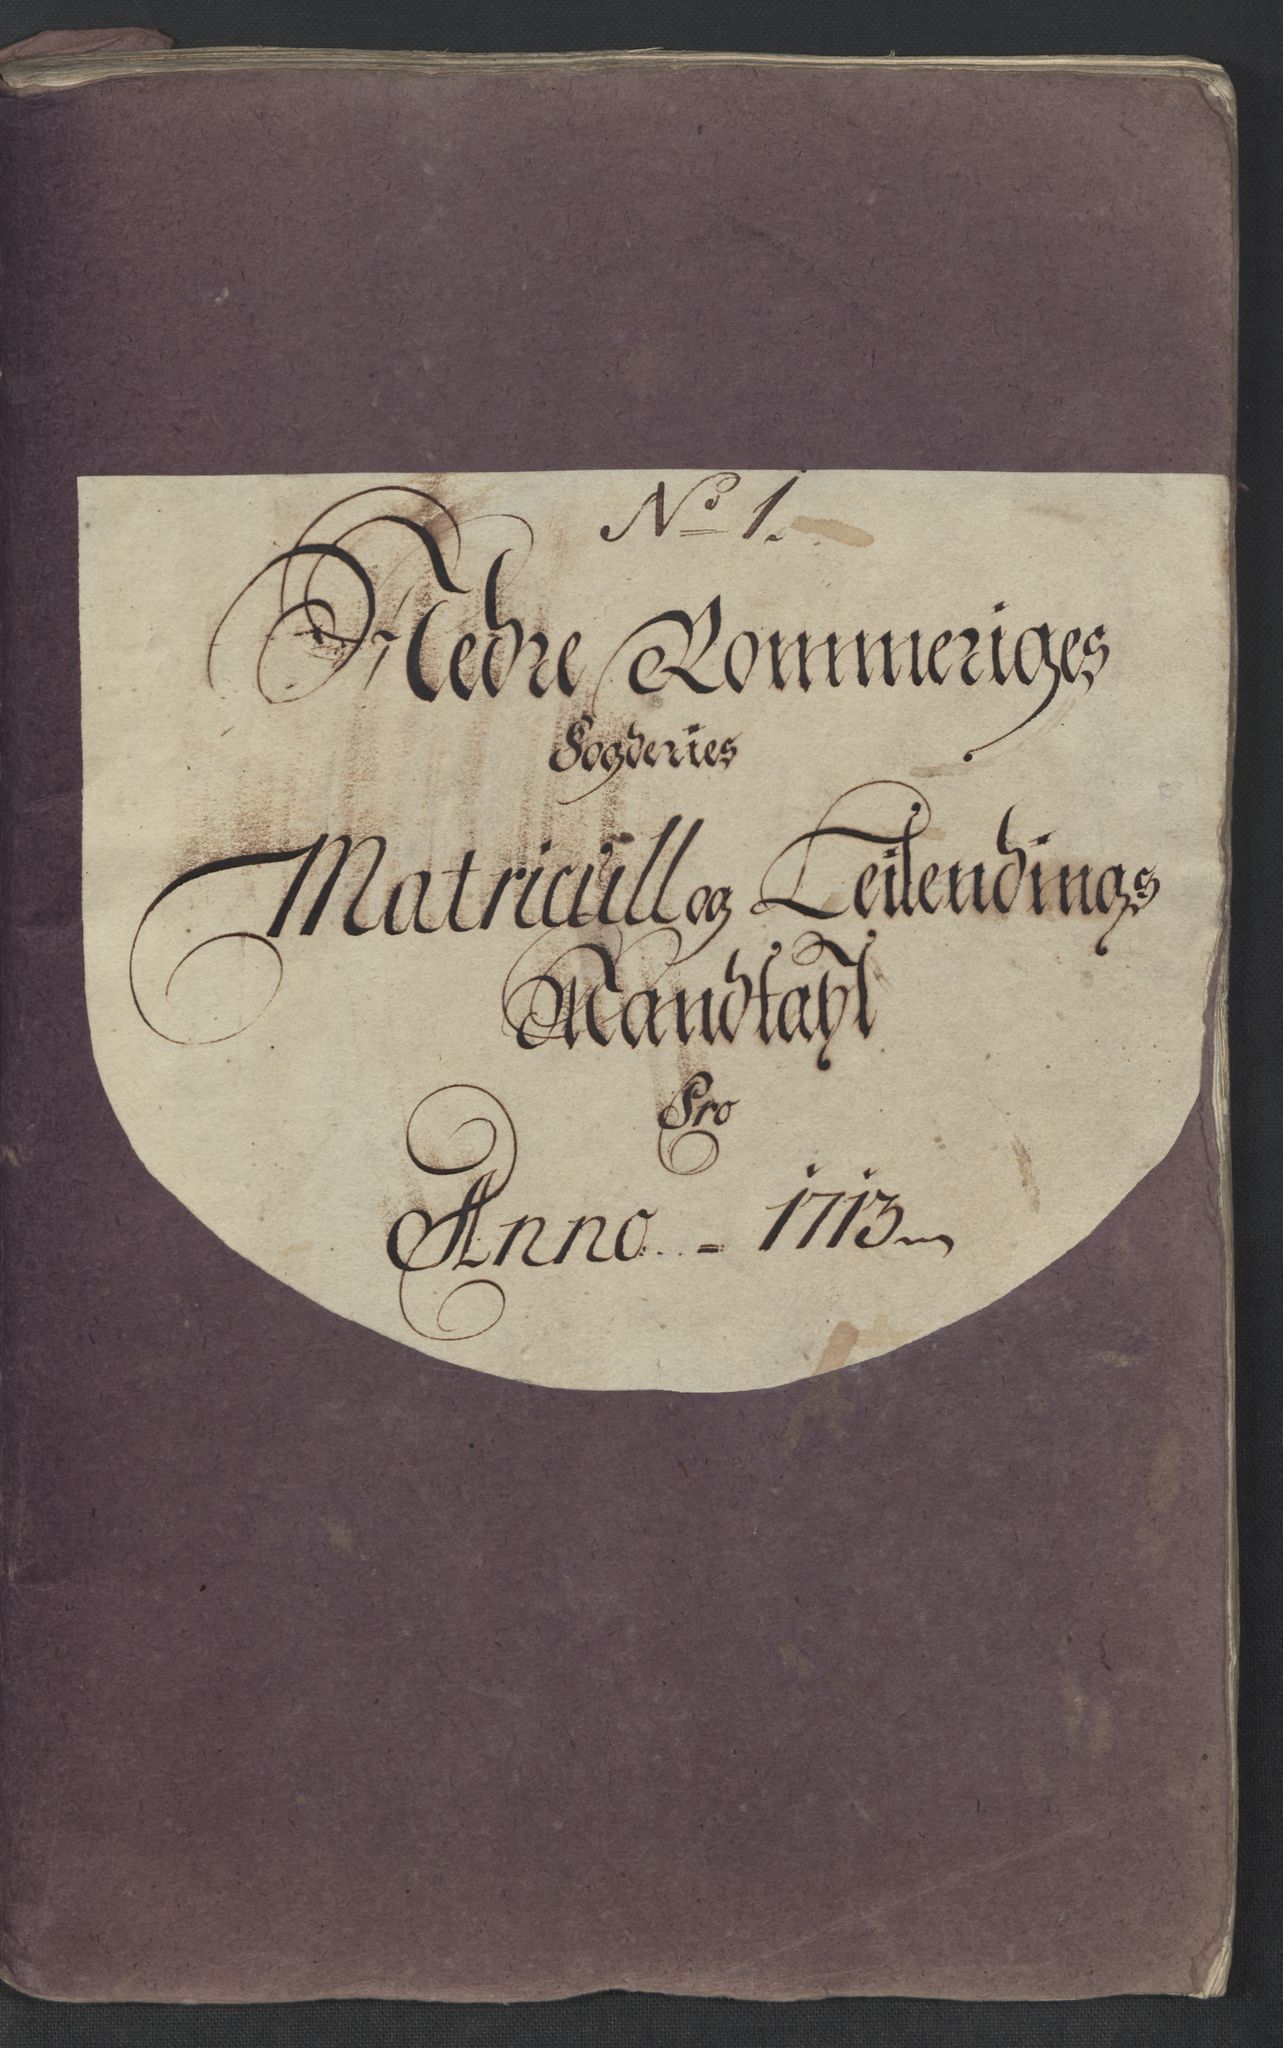 No 1.
Nedre Rommeriges
Fogderies
Matricull og Leilendings
Mandtahl
Pro
Anno - 1713